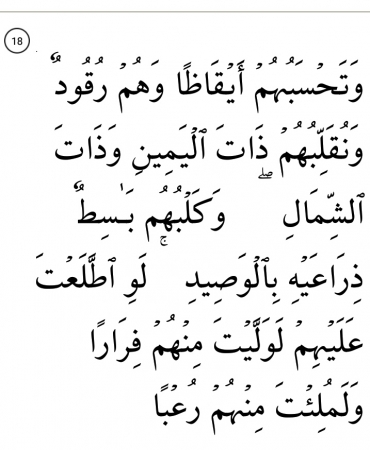 18
وَتَحْسَبُهُمْ أَيْقَاظًا وَهُمْ رُقُودٌ
وَنُقَلِّبُهُمْ ذَاتَ ٱلْيَمِينِ وَذَاتَ
ٱلشِّمَالِ ۖ وَكَلْبُهُم بَـٰسِطٌ
ذِرَاعَيْهِ بِٱلْوَصِيدِ ۚ لَوِ ٱطَّلَعْتَ
عَلَيْهِمْ لَوَلَّيْتَ مِنْهُمْ فِرَارًا
وَلَمُلِئْتَ مِنْهُمْ رُعْبًا